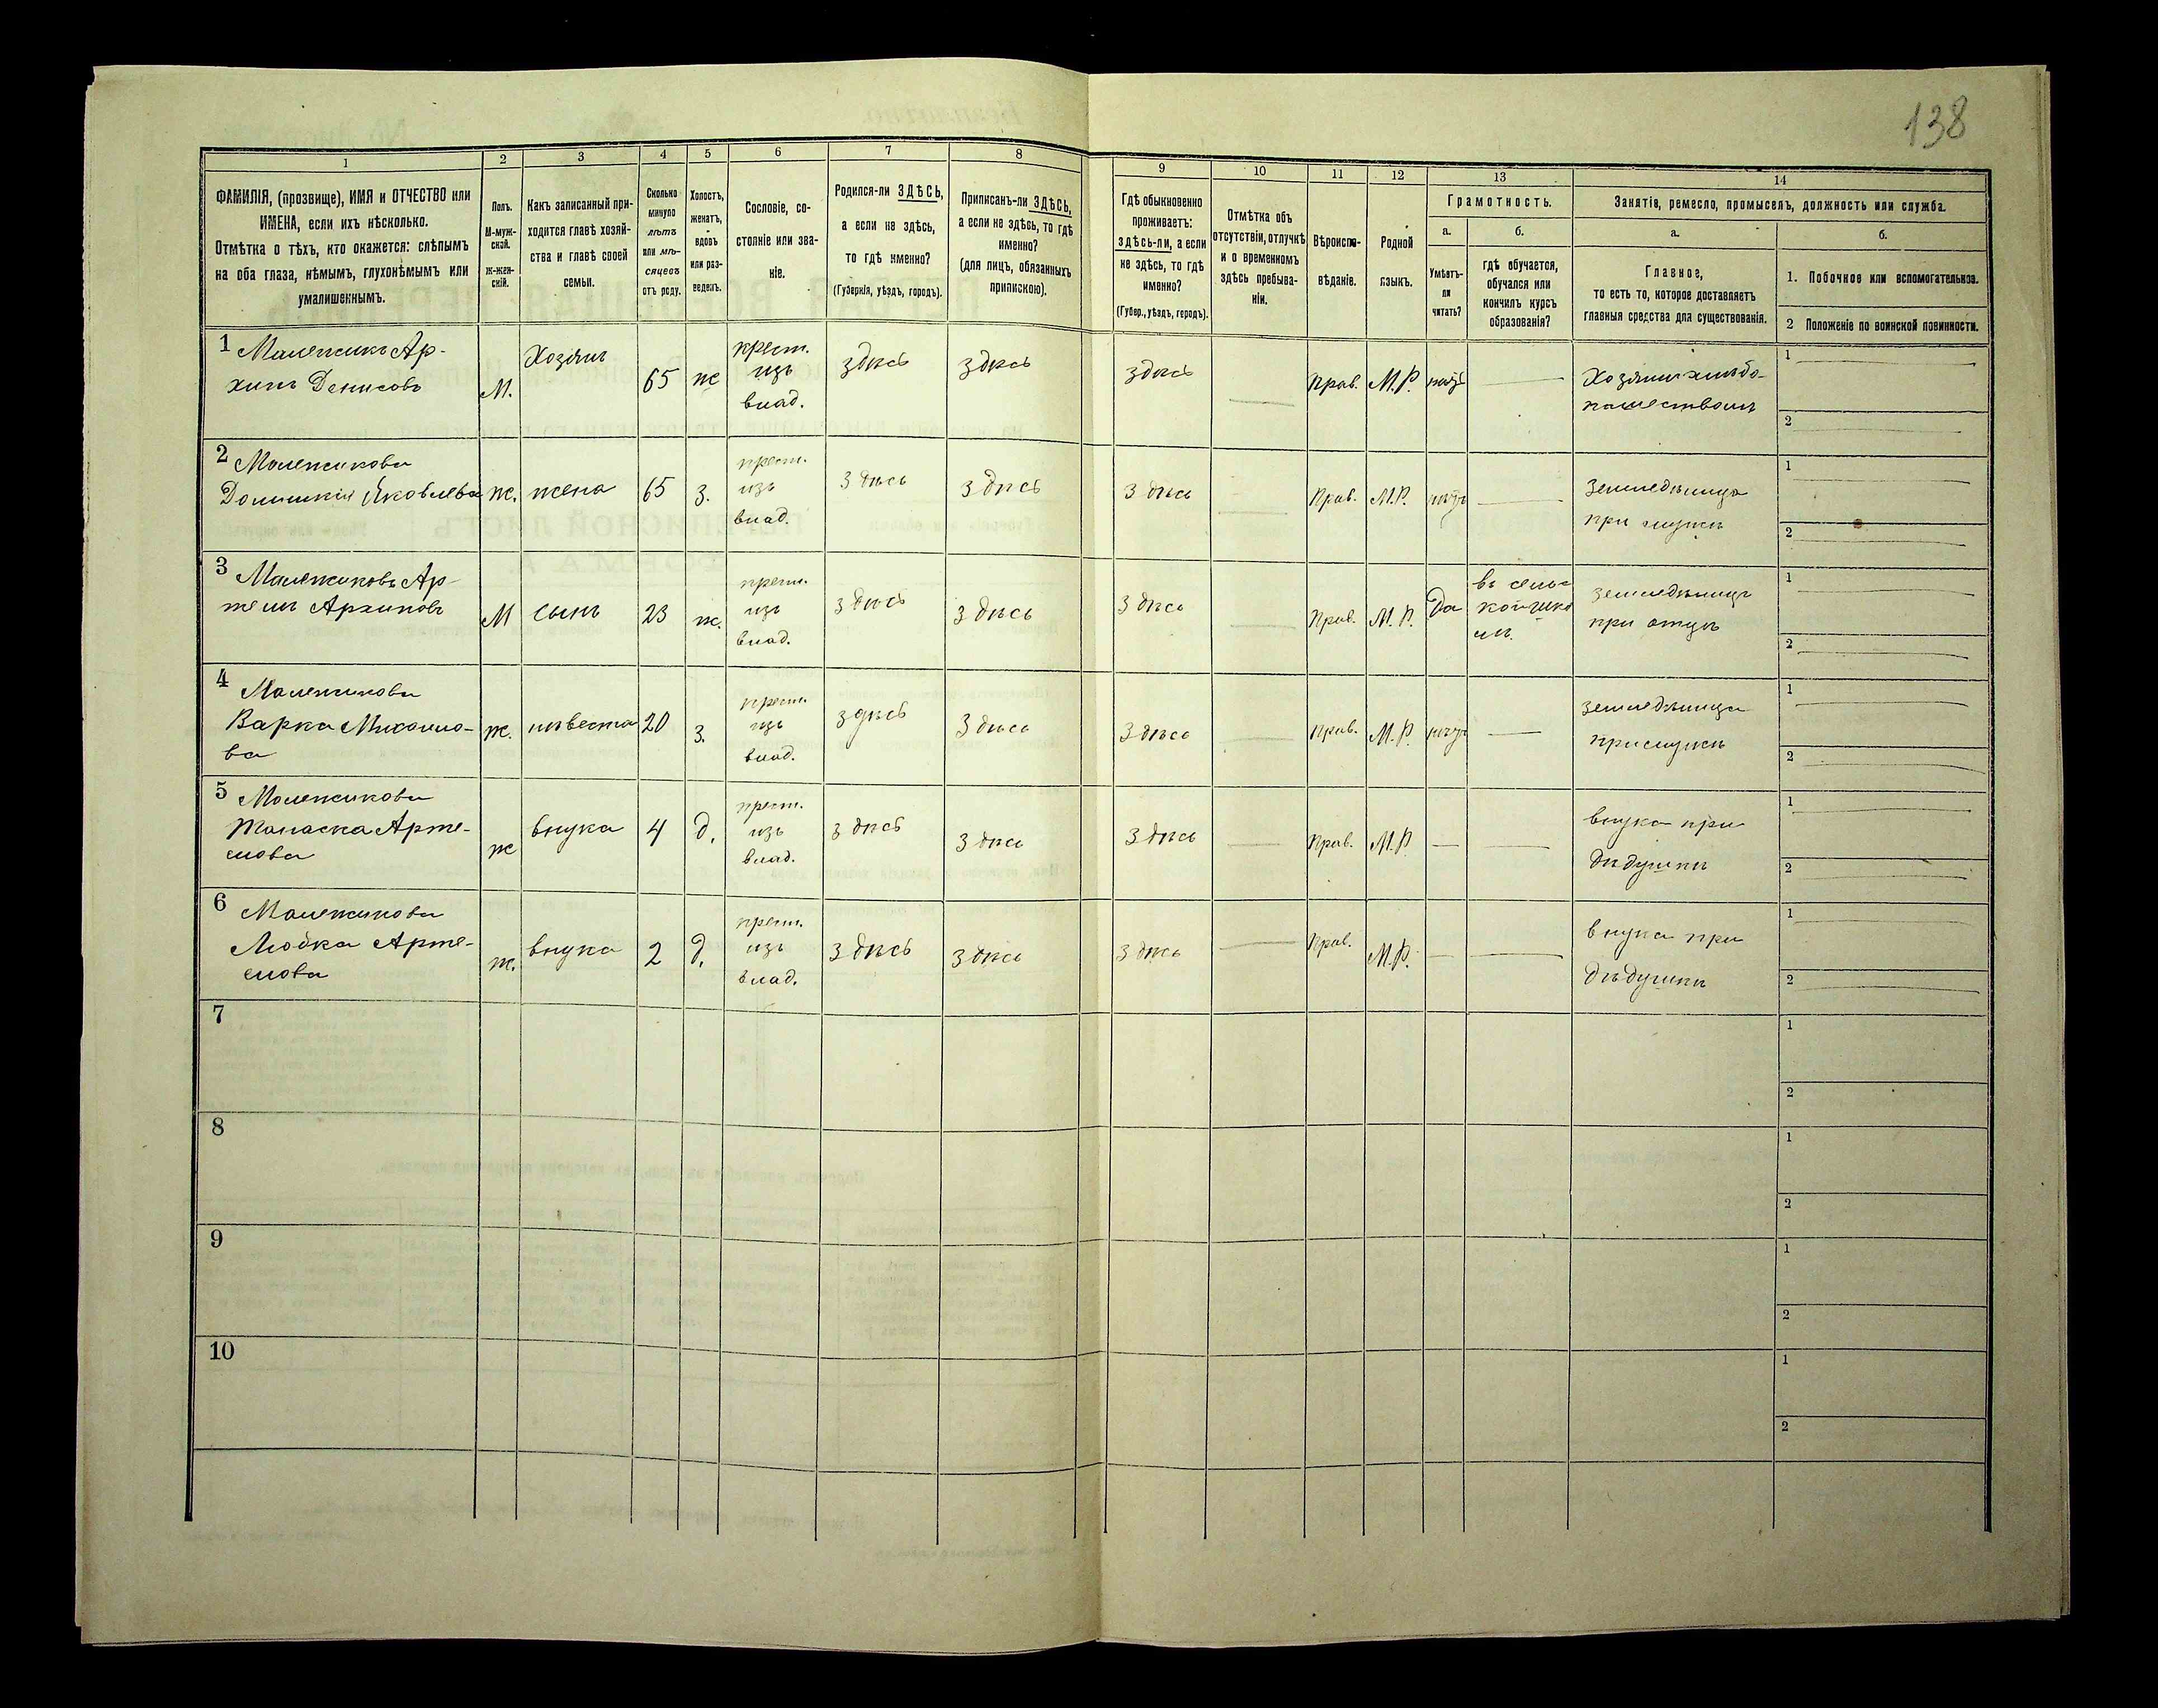 138
1
2
3
4
5
6
7
8
9
10
11
12
13
14
ФАМИЛІЯ, (прозвище), ИМЯ и ОТЧЕСТВО или
ИМЕНА, если ихъ нѣсколько.
Отмѣтка о тѣхъ, кто окажется: слѣпымъ
на оба глаза, нѣмымъ, глухонѣмымъ или
умалишеннымъ.
Полъ.
М-муж-
ской.
Ж-жен-
скій.
Какъ записанный при-
ходится главѣ хозяй-
ства и главѣ своей
семьи.
Сколько
минуло
лѣтъ
или мѣ-
сяцевъ
отъ роду.
Холостъ,
женатъ,
вдовъ
или раз-
веденъ.
Сословіе, со-
стояніе или зва-
ніе.
Родился-ли ЗДѢСЬ,
а если не здѣсь,
то гдѣ именно?
(Губернія, уѣздъ, городъ).
Приписанъ-ли ЗДѢСЬ,
а если не здѣсь, то гдѣ
именно?
(для лицъ, обязанныхъ
припискою).
Гдѣ обыкновенно
проживаетъ:
здѣсь-ли, а если
не здѣсь, то гдѣ
именно?
(Губер., уѣздъ, городъ).
Отмѣтка объ
отсутствіи, отлучкѣ
и о временномъ
здѣсь пребыва-
ніи.
Вѣроиспо-
вѣданіе.
Родной
языкъ.
Грамотность.
а.
Умѣетъ-
ли
читать?
б.
гдѣ обучается,
обучался или
кончилъ курсъ
образованія?
Занятіе, ремесло, промыселъ, должность или служба.
а.
Главное,
то есть то, которое доставляетъ
главныя средства для существованія.
б.
1. Побочное или вспомогательное.
2 Положеніе по воинской повинности.
1
Ар-
хипъ Денисовъ
М.
Хозяинъ
65
ж
крест.
изъ
влад.
здѣсь
здѣсь
здѣсь
Прав.
М.Р.
Хозяинъ хлѣбо-
пашествомъ
1
2
2
Яковлева
ж.
жена
65
з.
крест.
изъ
влад.
здѣсь
здѣсь
здѣсь
Прав.
М.Р.
Земледѣлица
при мужѣ
1
2
3
Ар-
темъ Архиповъ
М
сынъ
23
ж.
крест.
изъ
влад.
здѣсь
здѣсь
здѣсь
Прав.
М.Р.
Да
земледѣлецъ
при отцѣ
1
2
4
Варка Михайло-
ва
ж.
невѣстка
20
з.
крест.
изъ
влад.
здѣсь
здѣсь
здѣсь
Прав.
М.Р.
земледѣлица
при мужѣ
1
2
5
Арте-
мова
ж
внука
4
д.
крест.
изъ
влад.
здѣсь
здѣсь
здѣсь
Прав.
М.Р.
внука при
дѣдушкѣ
1
2
6
Арте-
мова
ж.
внука
2
д.
крест.
изъ
влад.
здѣсь
здѣсь
здѣсь
Прав.
М.Р.
внука при
дѣдушкѣ
1
2
7
1
2
8
1
2
9
1
2
10
1
2